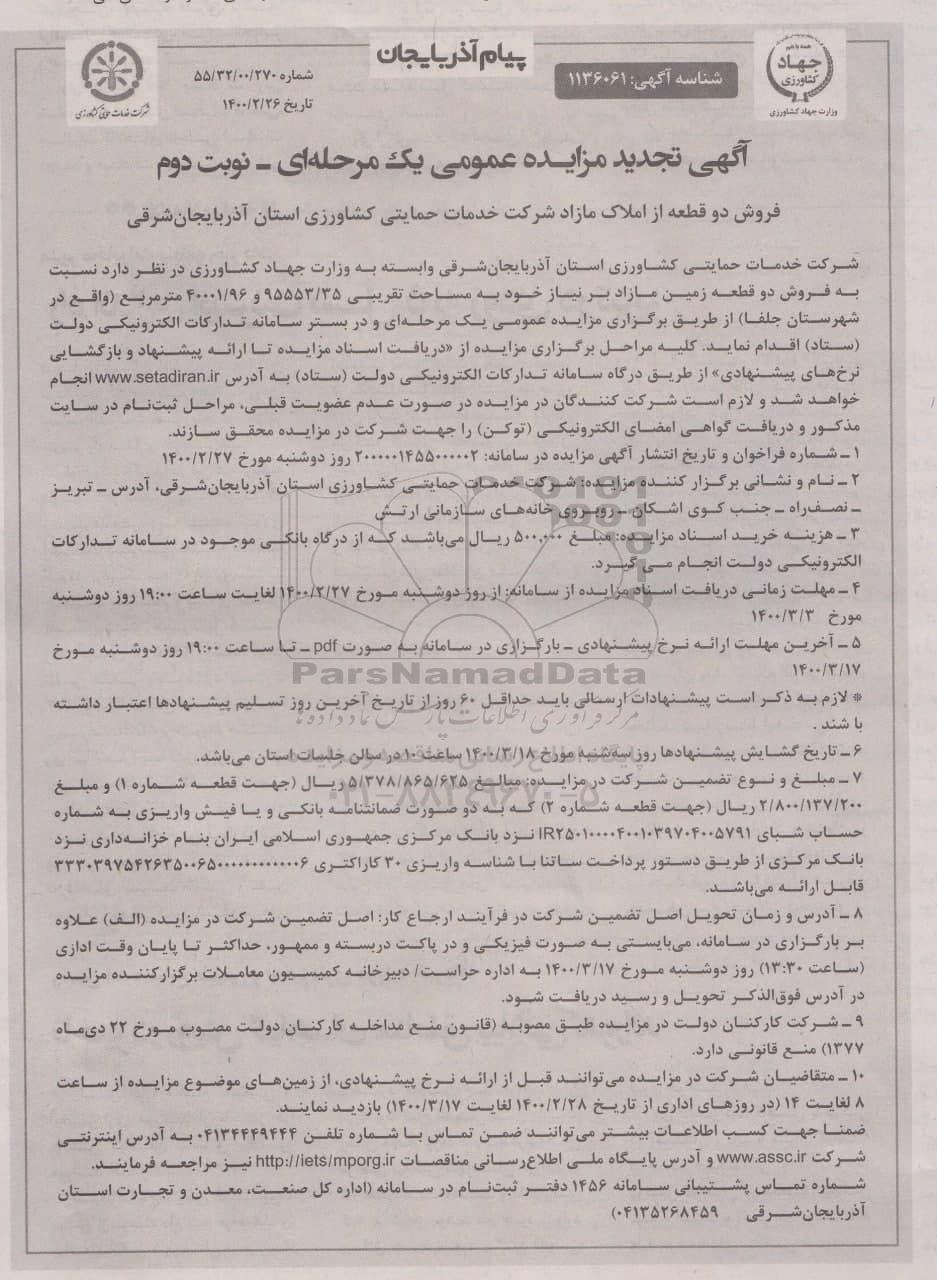 پیام آذربایجان
همه با هم
جهاد
کشاورزی
وزارت جهاد کشاورزی
شناسه آگهی: ۱۱۳۶۰۶۱
شماره ۵۵/۳۲/۰۰/۲۷۰
تاریخ ۱۴۰۰/۲/۲۶
شرکت خدمات حمایتی کشاورزی
آگهی تجدید مزایده عمومی یک مرحله‌ای ـ نوبت دوم
فروش دو قطعه از املاک مازاد شرکت خدمات حمایتی کشاورزی استان آذربایجان‌شرقی
شرکت خدمات حمایتی کشاورزی استان آذربایجان‌شرقی وابسته به وزارت جهاد کشاورزی در نظر دارد نسبت
به فروش دو قطعه زمین مازاد بر نیاز خود به مساحت تقریبی ۹۵۵۵۳/۳۵ و ۴۰۰۰۱/۹۶ مترمربع (واقع در
شهرستان جلفا) از طریق برگزاری مزایده عمومی یک مرحله‌ای و در بستر سامانه تدارکات الکترونیکی دولت
(ستاد) اقدام نماید. کلیه مراحل برگزاری مزایده از «دریافت اسناد مزایده تا ارائه پیشنهاد و بازگشایی
نرخ‌های پیشنهادی» از طریق درگاه سامانه تدارکات الکترونیکی دولت (ستاد) به آدرس www.setadiran.ir انجام
خواهد شد و لازم است شرکت کنندگان در مزایده در صورت عدم عضویت قبلی، مراحل ثبت‌نام در سایت
مذکور و دریافت گواهی امضای الکترونیکی (توکن) را جهت شرکت در مزایده محقق سازند.
۱ ـ شماره فراخوان و تاریخ انتشار آگهی مزایده در سامانه: ۲۰۰۰۰۰۱۴۵۵۰۰۰۰۰۲ روز دوشنبه مورخ ۱۴۰۰/۲/۲۷
۲ ـ نام و نشانی برگزار کننده مزایده: شرکت خدمات حمایتی کشاورزی استان آذربایجان‌شرقی، آدرس ـ تبریز
ـ نصف‌راه ـ جنب کوی اشکان ـ روبروی خانه‌های سازمانی ارتش
۳ ـ هزینه خرید اسناد مزایده: مبلغ ۵۰۰,۰۰۰ ریال می‌باشد که از درگاه بانکی موجود در سامانه تدارکات
الکترونیکی دولت انجام می گیرد.
۴ ـ مهلت زمانی دریافت اسناد مزایده از سامانه: از روز دوشنبه مورخ ۱۴۰۰/۲/۲۷ لغایت ساعت ۱۹:۰۰ روز دوشنبه
مورخ ۱۴۰۰/۳/۳
۵ ـ آخرین مهلت ارائه نرخ پیشنهادی ـ بارگزاری در سامانه به صورت pdf ـ تا ساعت ۱۹:۰۰ روز دوشنبه مورخ
۱۴۰۰/۳/۱۷
ParsNamadData
* لازم به ذکر است پیشنهادات ارسالی باید حداقل ۶۰ روز از تاریخ آخرین روز تسلیم پیشنهادها اعتبار داشته
با شند .
مرکز فرآوری اطلاعات پارس نماد داده ها
۶ ـ تاریخ گشایش پیشنهادها روز سه‌شنبه مورخ ۱۴۰۰/۳/۱۸ ساعت ۱۰ در سالن جلسات استان می‌باشد.
۷ ـ مبلغ و نوع تضمین شرکت در مزایده: مبالغ ۵/۳۷۸/۸۶۵/۶۲۵ ریال (جهت قطعه شماره ۱) و مبلغ
۲/۸۰۰/۱۳۷/۲۰۰ ریال (جهت قطعه شماره ۲) که به دو صورت ضمانتنامه بانکی و یا فیش واریزی به شماره
حساب شبای IR۲۵۰۱۰۰۰۰۴۰۰۱۰۳۹۷۰۴۰۰۵۷۹۱ نزد بانک مرکزی جمهوری اسلامی ایران بنام خزانه‌داری نزد
بانک مرکزی از طریق دستور پرداخت ساتنا با شناسه واریزی ۳۰ کاراکتری ۳۳۳۰۳۹۷۵۴۲۶۳۵۰۰۶۵۰۰۰۰۰۰۰۰۰۰۰۰۶
قابل ارائه می‌باشد.
۸ ـ آدرس و زمان تحویل اصل تضمین شرکت در فرآیند ارجاع کار: اصل تضمین شرکت در مزایده (الف) علاوه
بر بارگزاری در سامانه، می‌بایستی به صورت فیزیکی و در پاکت دربسته و ممهور، حداکثر تا پایان وقت اداری
(ساعت ۱۳:۳۰) روز دوشنبه مورخ ۱۴۰۰/۳/۱۷ به اداره حراست/ دبیرخانه کمیسیون معاملات برگزارکننده مزایده
در آدرس فوق‌الذکر تحویل و رسید دریافت شود.
۹ ـ شرکت کارکنان دولت در مزایده طبق مصوبه (قانون منع مداخله کارکنان دولت مصوب مورخ ۲۲ دی‌ماه
۱۳۷۷) منع قانونی دارد.
۱۰ ـ متقاضیان شرکت در مزایده می‌توانند قبل از ارائه نرخ پیشنهادی، از زمین‌های موضوع مزایده از ساعت
۸ لغایت ۱۴ (در روزهای اداری از تاریخ ۱۴۰۰/۲/۲۸ لغایت ۱۴۰۰/۳/۱۷) بازدید نمایند.
ضمنا جهت کسب اطلاعات بیشتر می‌توانند ضمن تماس با شماره تلفن ۰۴۱۳۴۴۴۹۴۴۴ به آدرس اینترنتی
شرکت www.assc.ir و آدرس پایگاه ملی اطلاع‌رسانی مناقصات http://iets/mporg.ir نیز مراجعه فرمایند.
شماره تماس پشتیبانی سامانه ۱۴۵۶ دفتر ثبت‌نام در سامانه (اداره کل صنعت، معدن و تجارت استان
آذربایجان‌شرقی ۰۴۱۳۵۲۶۸۴۵۹)